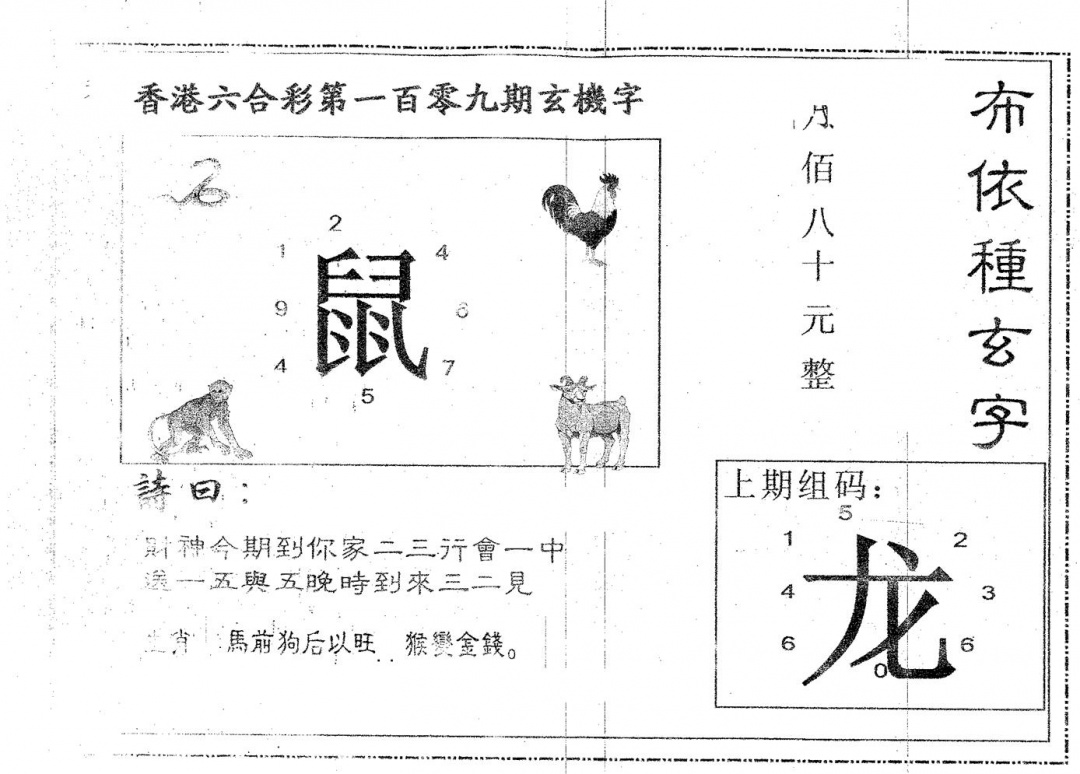 香港六合彩第一百零九期玄機字
2
1 4
鼠
9 6
4 7
5
詩曰：
財神今期到你家二三行會一中
選一五與五晚時到來三二見
生肖 馬前狗后以旺 猴變金錢。
佰八十元整
布依種玄字
上期组码：
5
1 2
龙
4 3
6 6
0